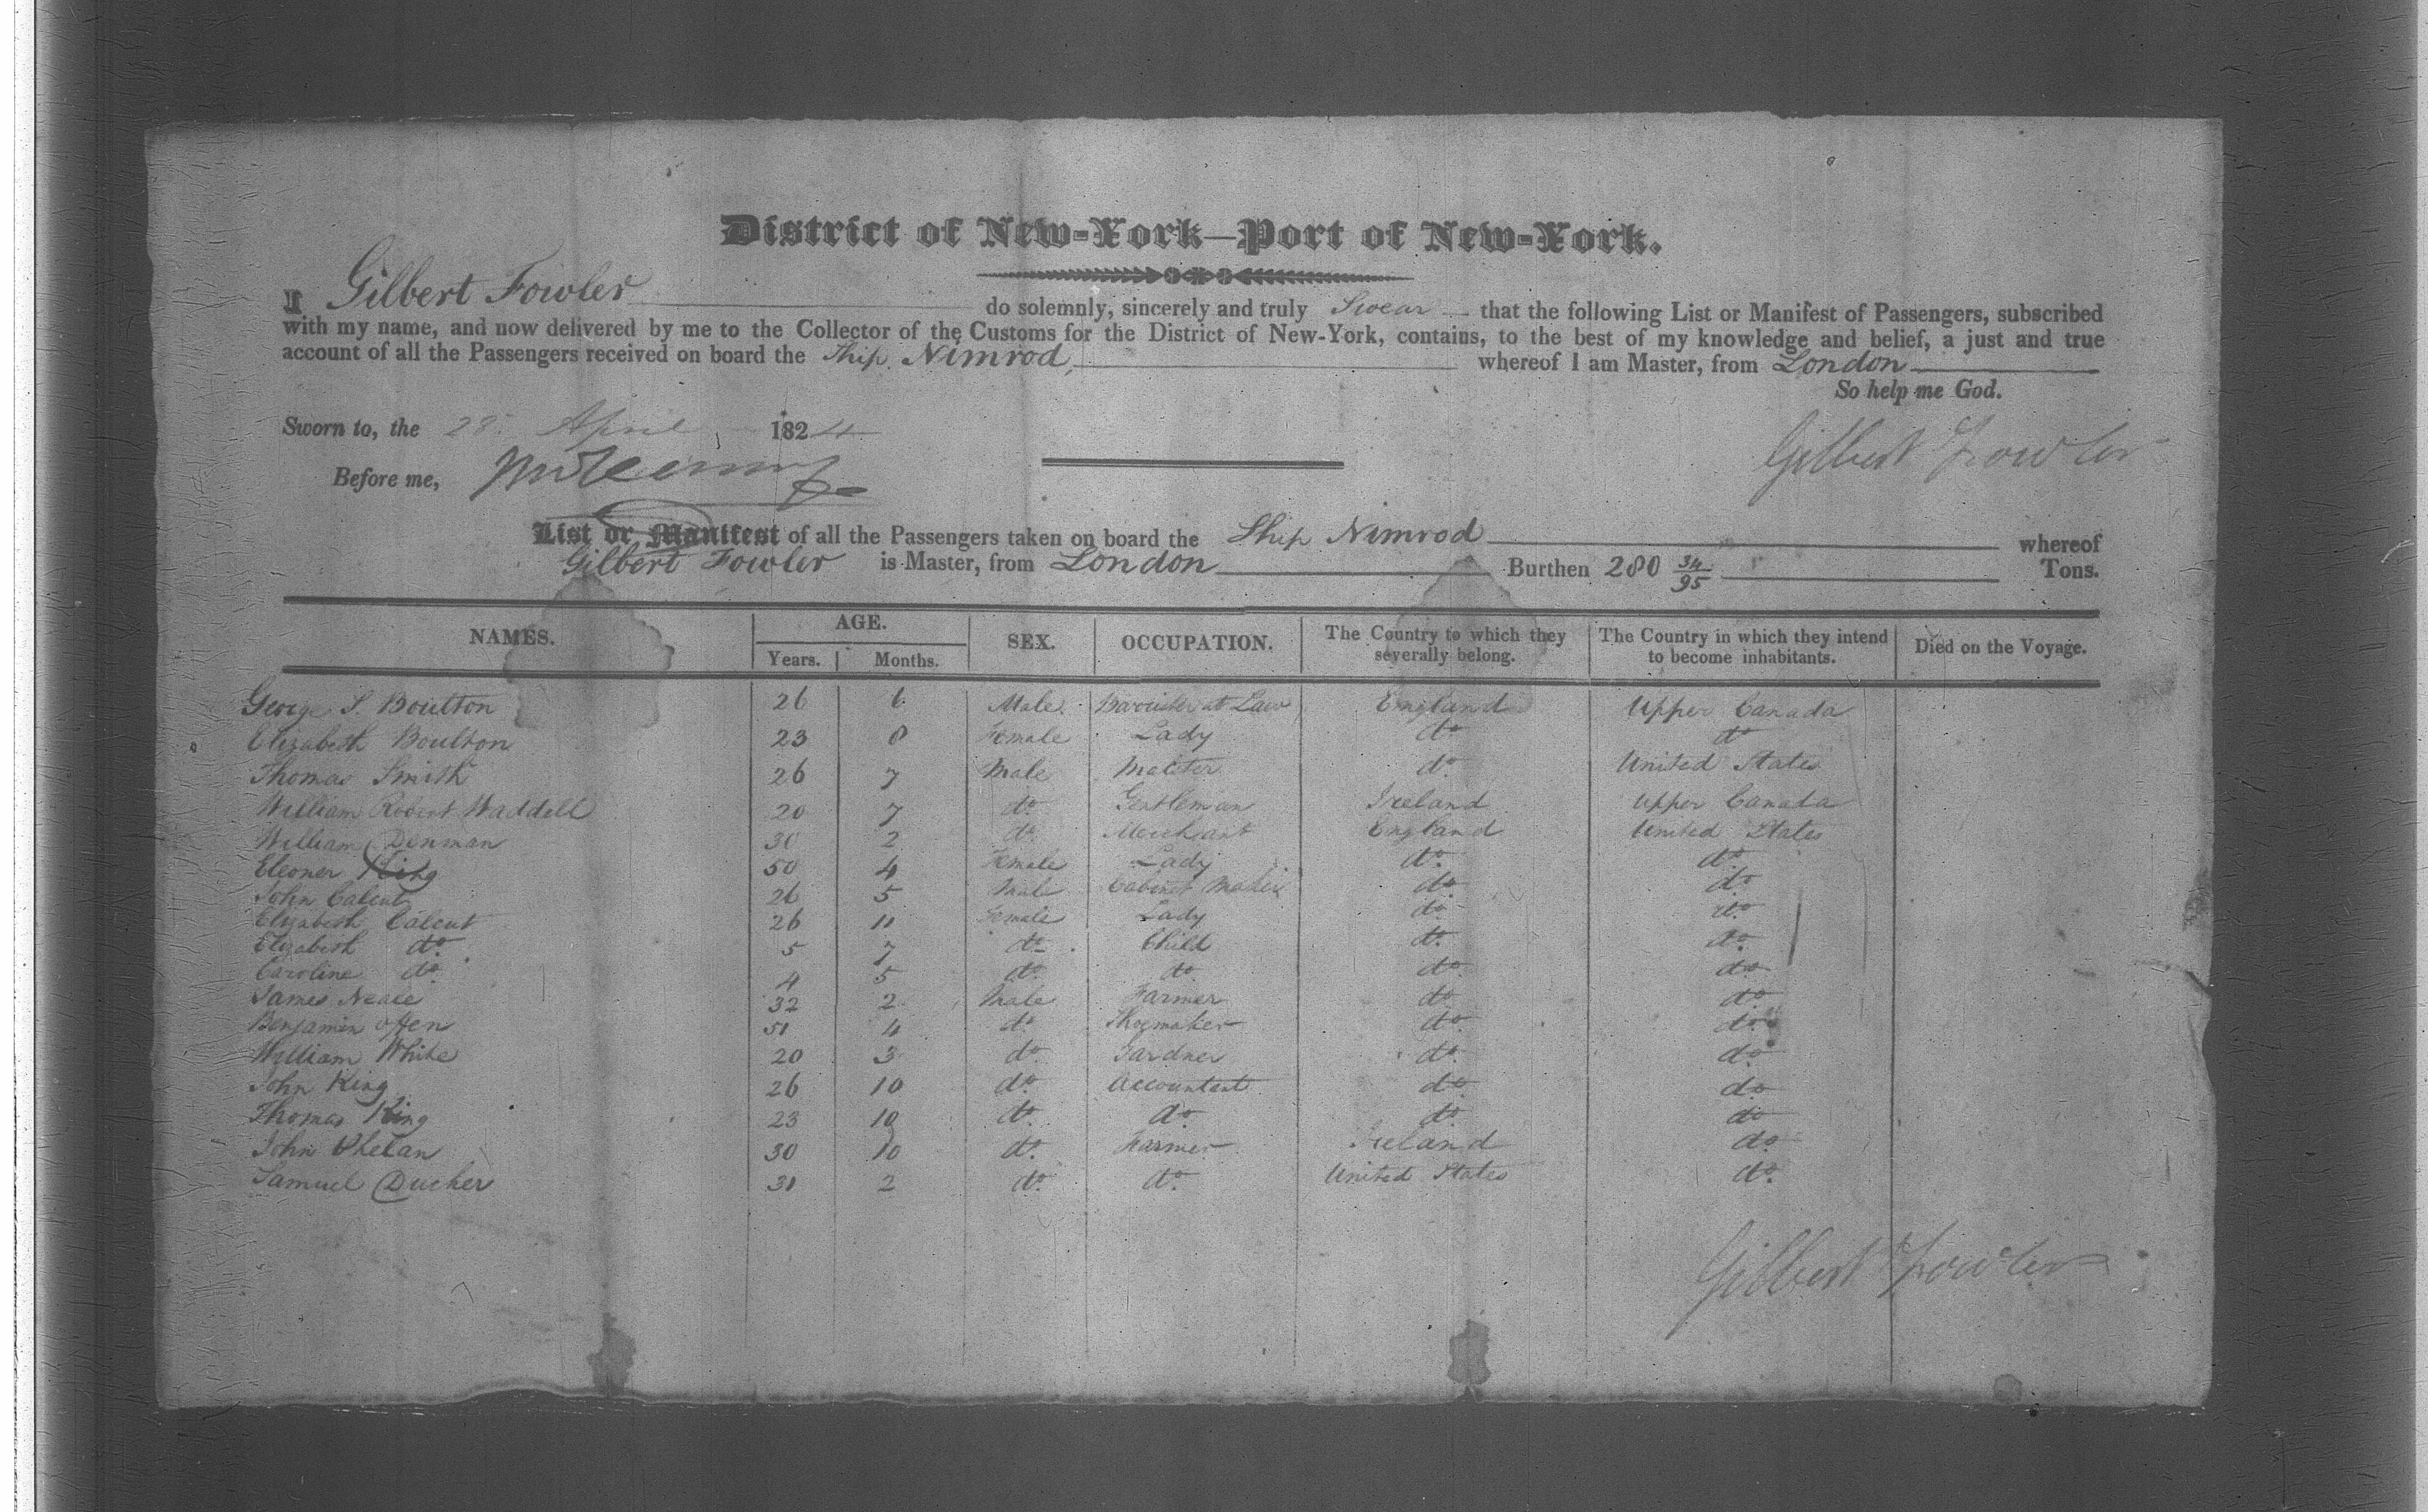 District of New-York—Port of New-York.
I Gilbert Fowler do solemnly, sincerely and truly Swear that the following List or Manifest of Passengers, subscribed
with my name, and now delivered by me to the Collector of the Customs for the District of New-York, contains, to the best of my knowledge and belief, a just and true
account of all the Passengers received on board the Ship Nimrod, whereof I am Master, from London
So help me God.
Sworn to, the 28. April 1824
Gilbert Fowler
Before me,
List or Manifest of all the Passengers taken on board the Ship Nimrod whereof
Gilbert Fowler is Master, from London Burthen 280 34/95 Tons.
NAMES. AGE. SEX. OCCUPATION. The Country to which they severally belong. The Country in which they intend to become inhabitants. Died on the Voyage.
Years. Months.
George S. Boulton 26 6 Male Barrister at Law England Upper Canada
Elizabeth Boulton 23 8 Female Lady do do
Thomas Smith 26 7 Male Malster do United States
William Robert Waddell 20 7 do Gentleman Ireland Upper Canada
William Denman 30 2 do Merchant England United States
Eleoner King 50 4 Female Lady do do
John Calcut 26 5 Male Cabinet Maker do do
Elizabeth Calcut 26 11 Female Lady do do
Elizabeth do 5 7 do Child do do
Caroline do 4 5 do do do do
James Neale 32 2 Male Farmer do do
Benjamin Offen 51 4 do Shoemaker do do
William White 20 3 do Gardner do do
John King 26 10 do Accountant do do
Thomas King 23 10 do do do do
John Phelan 30 10 do Farmer Ireland do
Samuel Ducher 31 2 do do United States do
Gilbert Fowler